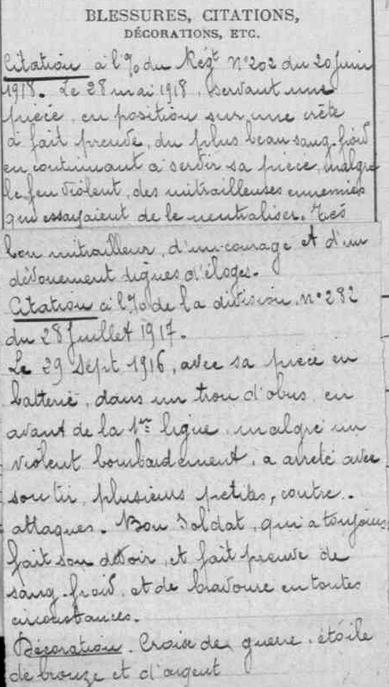 BLESSURES, CITATIONS,
DÉCORATIONS, ETC.
Citation à l'O/ du Régt N°202 du 20 juin
1918. Le 28 mai 1918, servant une
pièce, en position sur une crête
à fait preuve, du plus beau sang-froid
en continuant à servir sa pièce, malgré
le feu violent, des mitrailleuses ennemies
qui essayaient de le neutraliser. Très
bon mitrailleur, d'un courage et d'un
dévouement dignes d'éloges.
Citation à l'O/ de la division, n° 282
du 28 Juillet 1917.
Le 29 Sept 1916, avec sa pièce en
batterie, dans un trou d'obus, en
avant de la 1re ligne, malgré un
violent bombardement, a arrêté avec
son tir, plusieurs petites, contre-
attaques. Bon Soldat, qui a toujours
fait son devoir, et fait preuve de
sang-froid, et de bravoure en toutes
circonstances.
Décoration. Croix de guerre. étoile
de bronze et d'argent